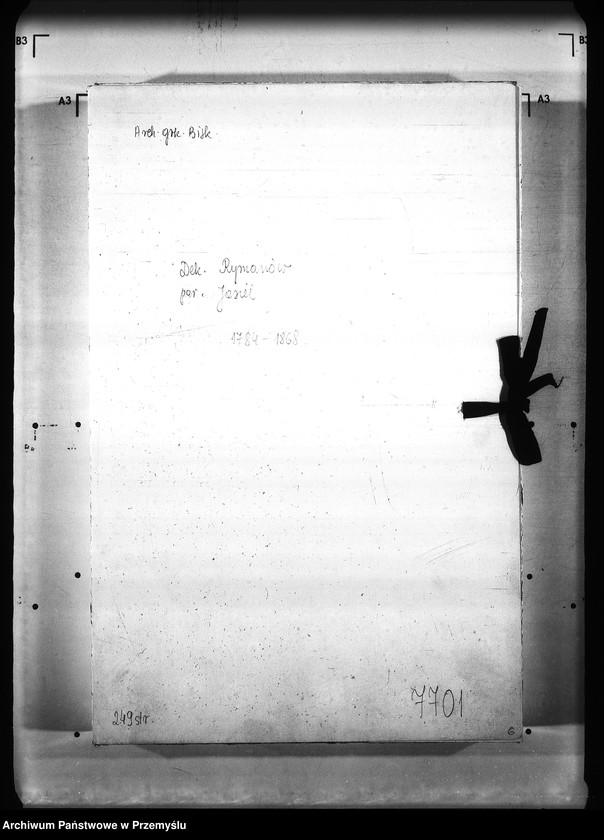 B3
B3
A3
A3
Arch. grk. Bisk.
Dek. Rymanów
par. Jaśiel
1784 - 1868
249 str.
7701
6
Archiwum Państwowe w Przemyślu